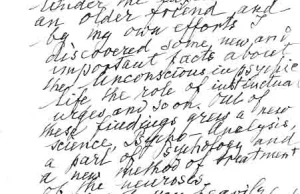 under the
an older friend and
by my own efforts I
discovered some new and
important facts about
the unconscious in psychic
life the role of instinctual
urges and so on. Out of
these findings grew a new
science, Psycho-Analysis,
a part of psychology and
a new method of treatment
of the neuroses.
heavily